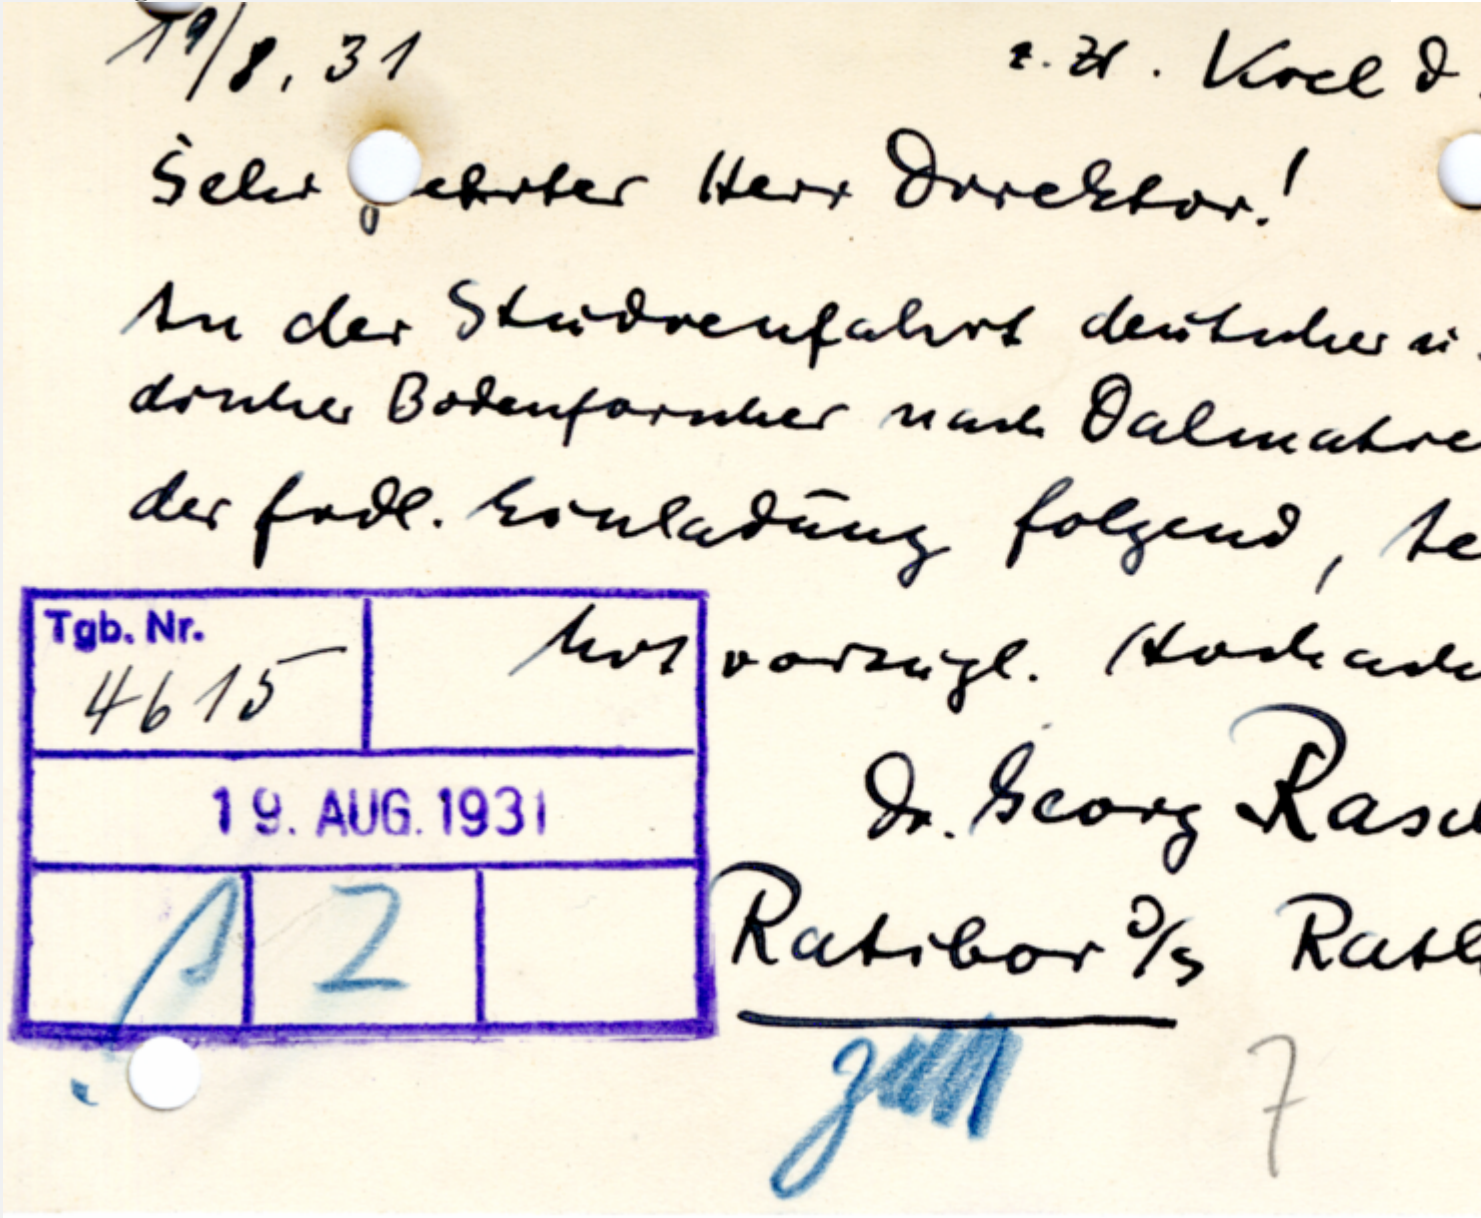 19/8. 31 z. Zt. Kosel d.
Sehr geehrter Herr Direktor!
An der Studienfahrt deutscher u.
discher Bodenforscher nach Dalmatie
der frdl. Einladung folgend, te
Tgb. Nr.
4615
Mit vorzügl. Hochach
19. AUG. 1931
Dr. Georg Rasc
2
Ratibor O/S Rath
7